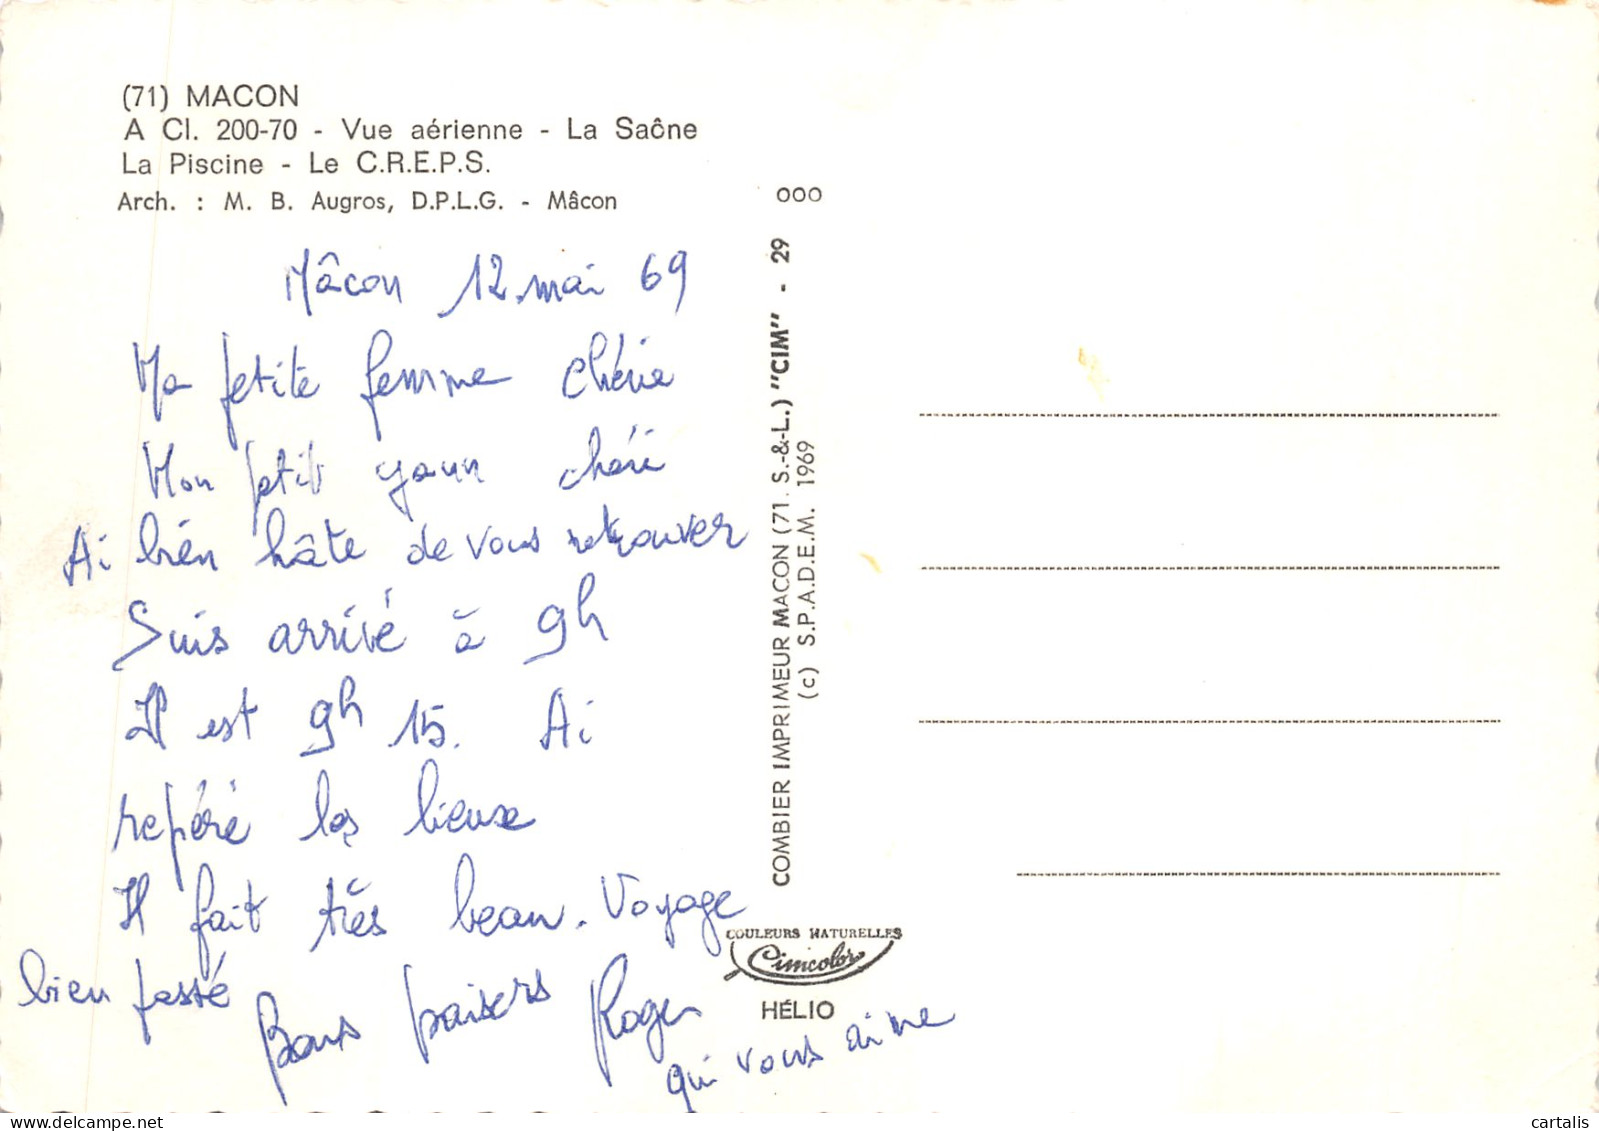 (71) MACON
A Cl. 200-70 - Vue aérienne - La Saône
La Piscine - Le C.R.E.P.S.
Arch. : M. B. Augros, D.P.L.G. - Mâcon
Mâcon 12 mai 69
Ma petite femme chérie
Mon petit yann chéri
Ai bien hâte de vous retrouver
Suis arrivé à 9h
Il est 9h 15. Ai
repéré les lieux
Il fait très beau. Voyage
bien passé
Bons baisers Roger
qui vous aime
000
COMBIER IMPRIMEUR MACON (71. S.-&-L.) "CIM" - 29
(c) S.P.A.D.E.M. 1969
COULEURS NATURELLES
Cimcolor
HÉLIO
cartalis